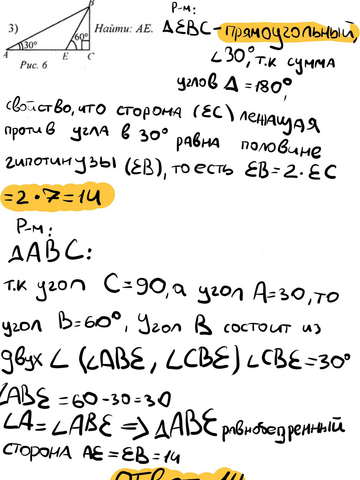 Р-м:
3)
B
Найти: AE.
ΔEBC-прямоугольный,
60°
30°
A
E
C
∠30°, т.к сумма
Рис. 6
углов Δ = 180°,
свойство, что сторона (EC) лежащая
против угла в 30° равна половине
гипотинузы (EB), то есть EB = 2 · EC
= 2 · 7 = 14
Р-м:
ΔABC:
т.к угол C = 90, а угол A = 30, то
угол B = 60°, Угол B состоит из
двух ∠ (∠ABE, ∠CBE) ∠CBE = 30°
∠ABE = 60 - 30 = 30
∠A = ∠ABE => ΔABE равнобедренный
сторона AE = EB = 14
Ответ: 14